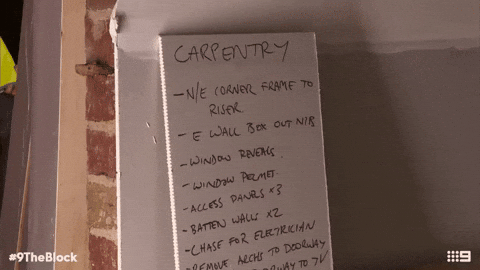 CARPENTRY
- N/E CORNER FRAME TO
RISER
- E WALL BOX OUT NIB
- WINDOW REVEALS.
- WINDOW PELMET.
- ACCESS PANELS x3
- BATTEN WALLS x2
- CHASE FOR ELECTRICIAN
- REMOVE ARCHS TO DOORWAY
DOORWAY TO
#9TheBlock
9